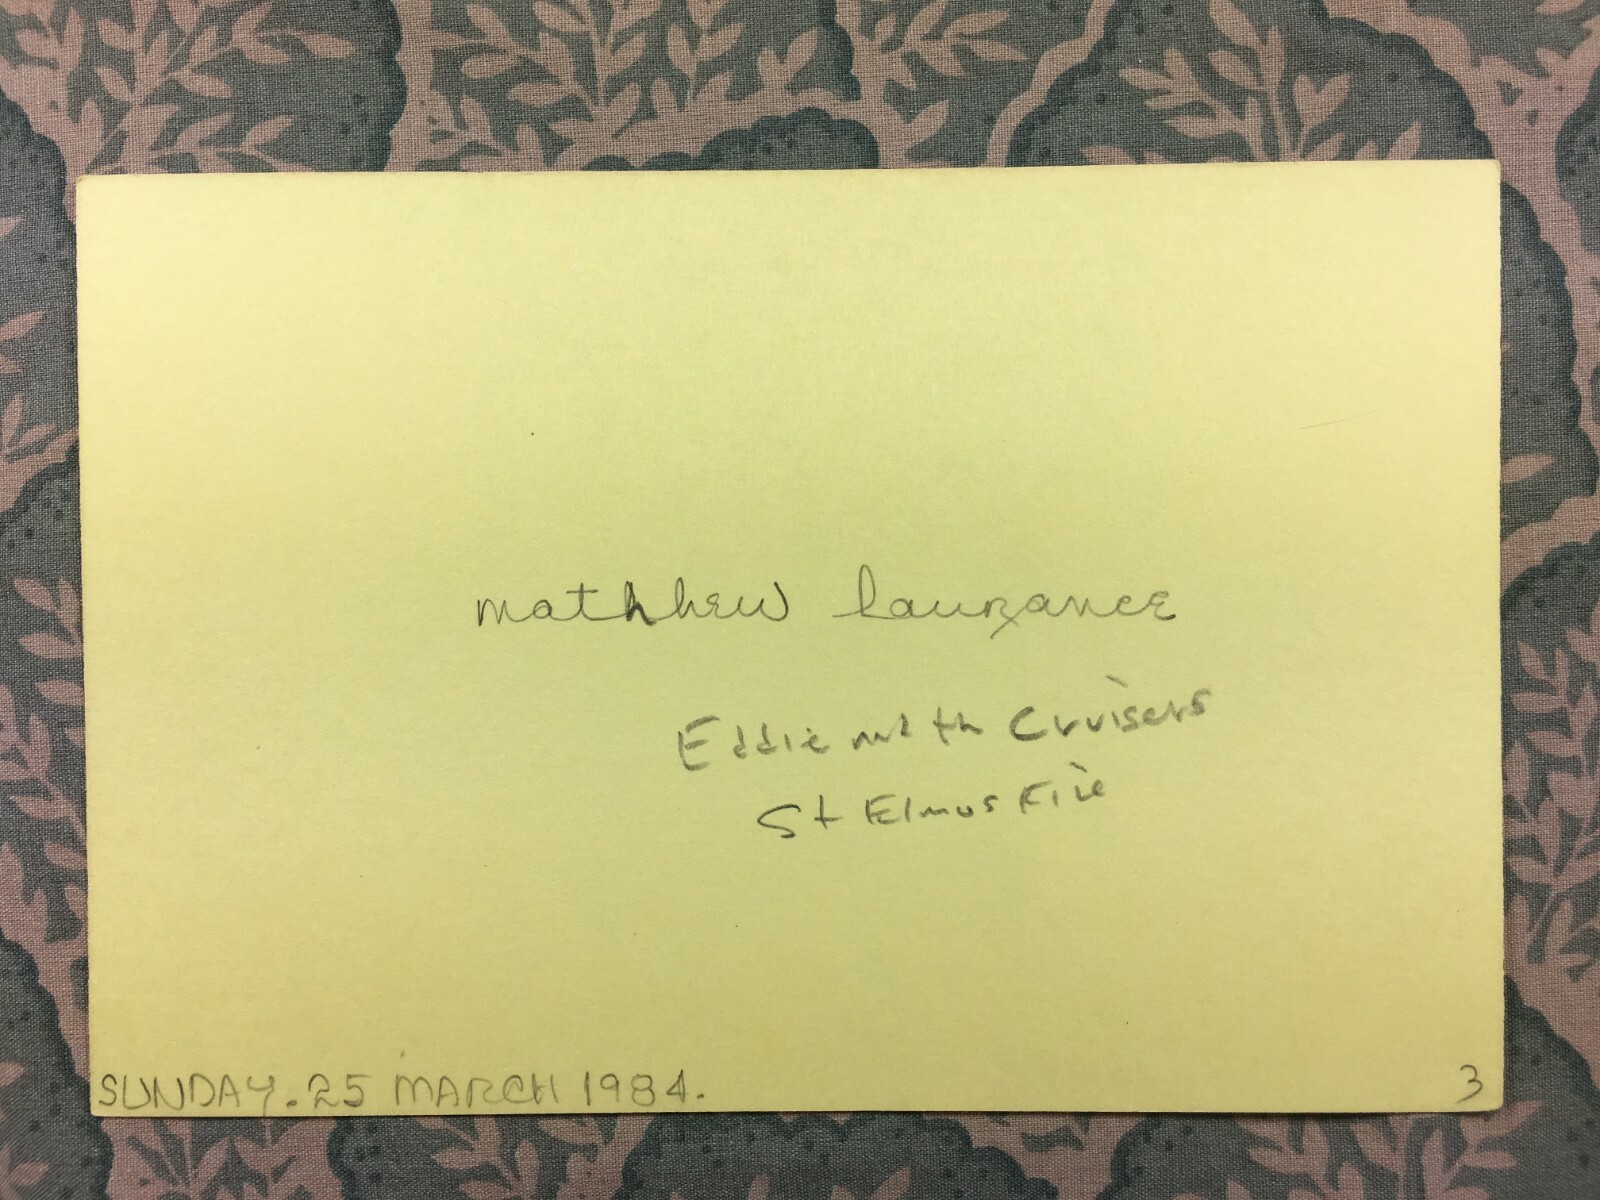 mathhew laurance
Eddie and the Cruisers
St Elmos Fire
SUNDAY. 25 MARCH 1984.
3